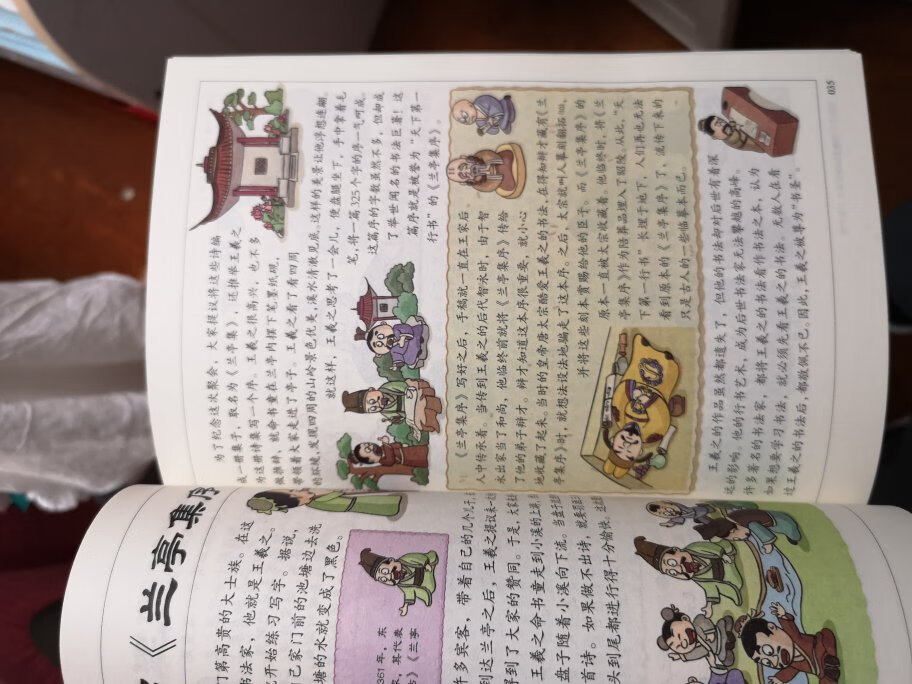 《兰亭集序
门第高贵的大士族。在这
书法家，他就是王羲之。
开始练习写字。据说，
自己家门前的池塘边去洗
塘的水就变成了黑色。
361年，东
其代表
《兰亭
许多宾客，带着自己的几个儿子
到达兰亭之后，王羲之提议来一
得到了大家的赞同。于是，大家
王羲之命书童走到小溪的上游
盘子随着小溪向下流。当盘子
首诗。如果做不出诗，就要
头到尾都进行得十分愉快。
为了纪念这次聚会，大家提议将这些诗编
成一册集子，取名为《兰亭集》，还推举王羲之
为这册诗集写一个序。王羲之很高兴，也不多
做推辞，就命书童在兰亭内摆了笔墨纸砚，
带领着大家走进了亭子。王羲之看了看四周
的环境，发现四周的山岭景色优美，溪水清澈见底。这样的美景让他浮想连翩。
就这样，王羲之思考了一会儿，便盘腿坐下，手中拿着毛
笔，将一篇325个字的序一气呵成。
这篇序的字数虽然不多，但却成
了举世闻名的书法巨著，这
篇序就是被誉为“天下第一
行书”的《兰亭集序》。
《兰亭集序》写好之后，手稿就一直在王家后
人中传承着。当传到王羲之的后代智永时，由于智
永出家当了和尚，他临终前就将《兰亭集序》传给
他的弟子辩才。辩才知道这本序很重要，就小心
地收藏了起来。当时的皇帝唐太宗酷爱王羲之的书法，在得知辩才藏有《兰
亭集序》时，就想方设法地骗走了这本序。之后，太宗就叫人摹刻翻拓
并将这些刻本赏赐给他的臣子。而《兰亭集序》的
原本一直被太宗收藏着。他临终时，将《兰
亭集序》作为陪葬品埋入了昭陵。从此，“天
下第一行书”长埋于地下，人们再也无法
看到原本的《兰亭集序》了，流传下来的
只是古人的一些临摹本而已。
王羲之的作品虽然都遗失了，但他的书法却对后世有着深
远的影响。他的行书艺术，成为后世书法家无法攀越的高峰。
许多著名的书法家，都将王羲之的书法看作书法之本，认为
如果想要学习书法，就必须先看王羲之的书法。无数人在看
过王羲之的书法后，都敬佩不已。因此，王羲之被尊为“书圣”。
035